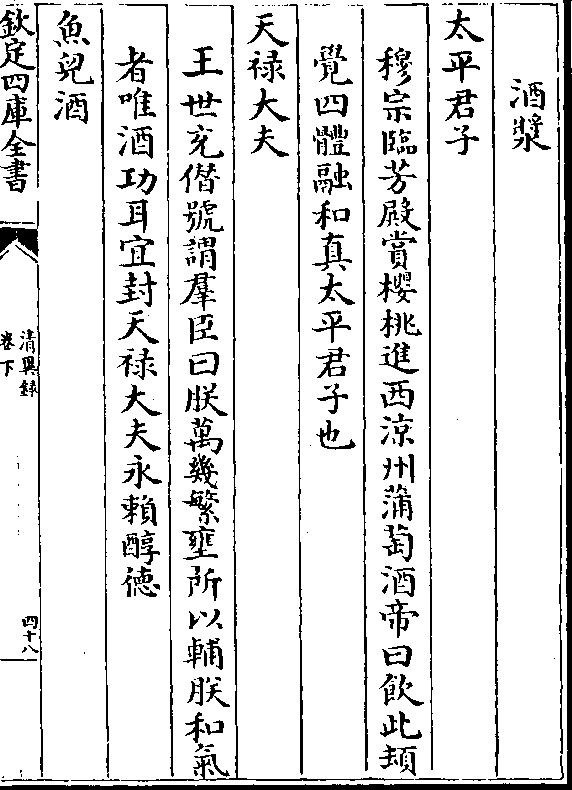 酒漿
太平君子
穆宗臨芳殿賞櫻桃進西涼州蒲萄酒帝曰飲此頓
覺四體融和真太平君子也
天禄大夫
王世充僭號謂羣臣曰朕萬幾繁壅所以輔朕和氣
者唯酒功耳宜封天禄大夫永賴醇德
魚兒酒
欽定四庫全書
清異錄
卷下
四十八